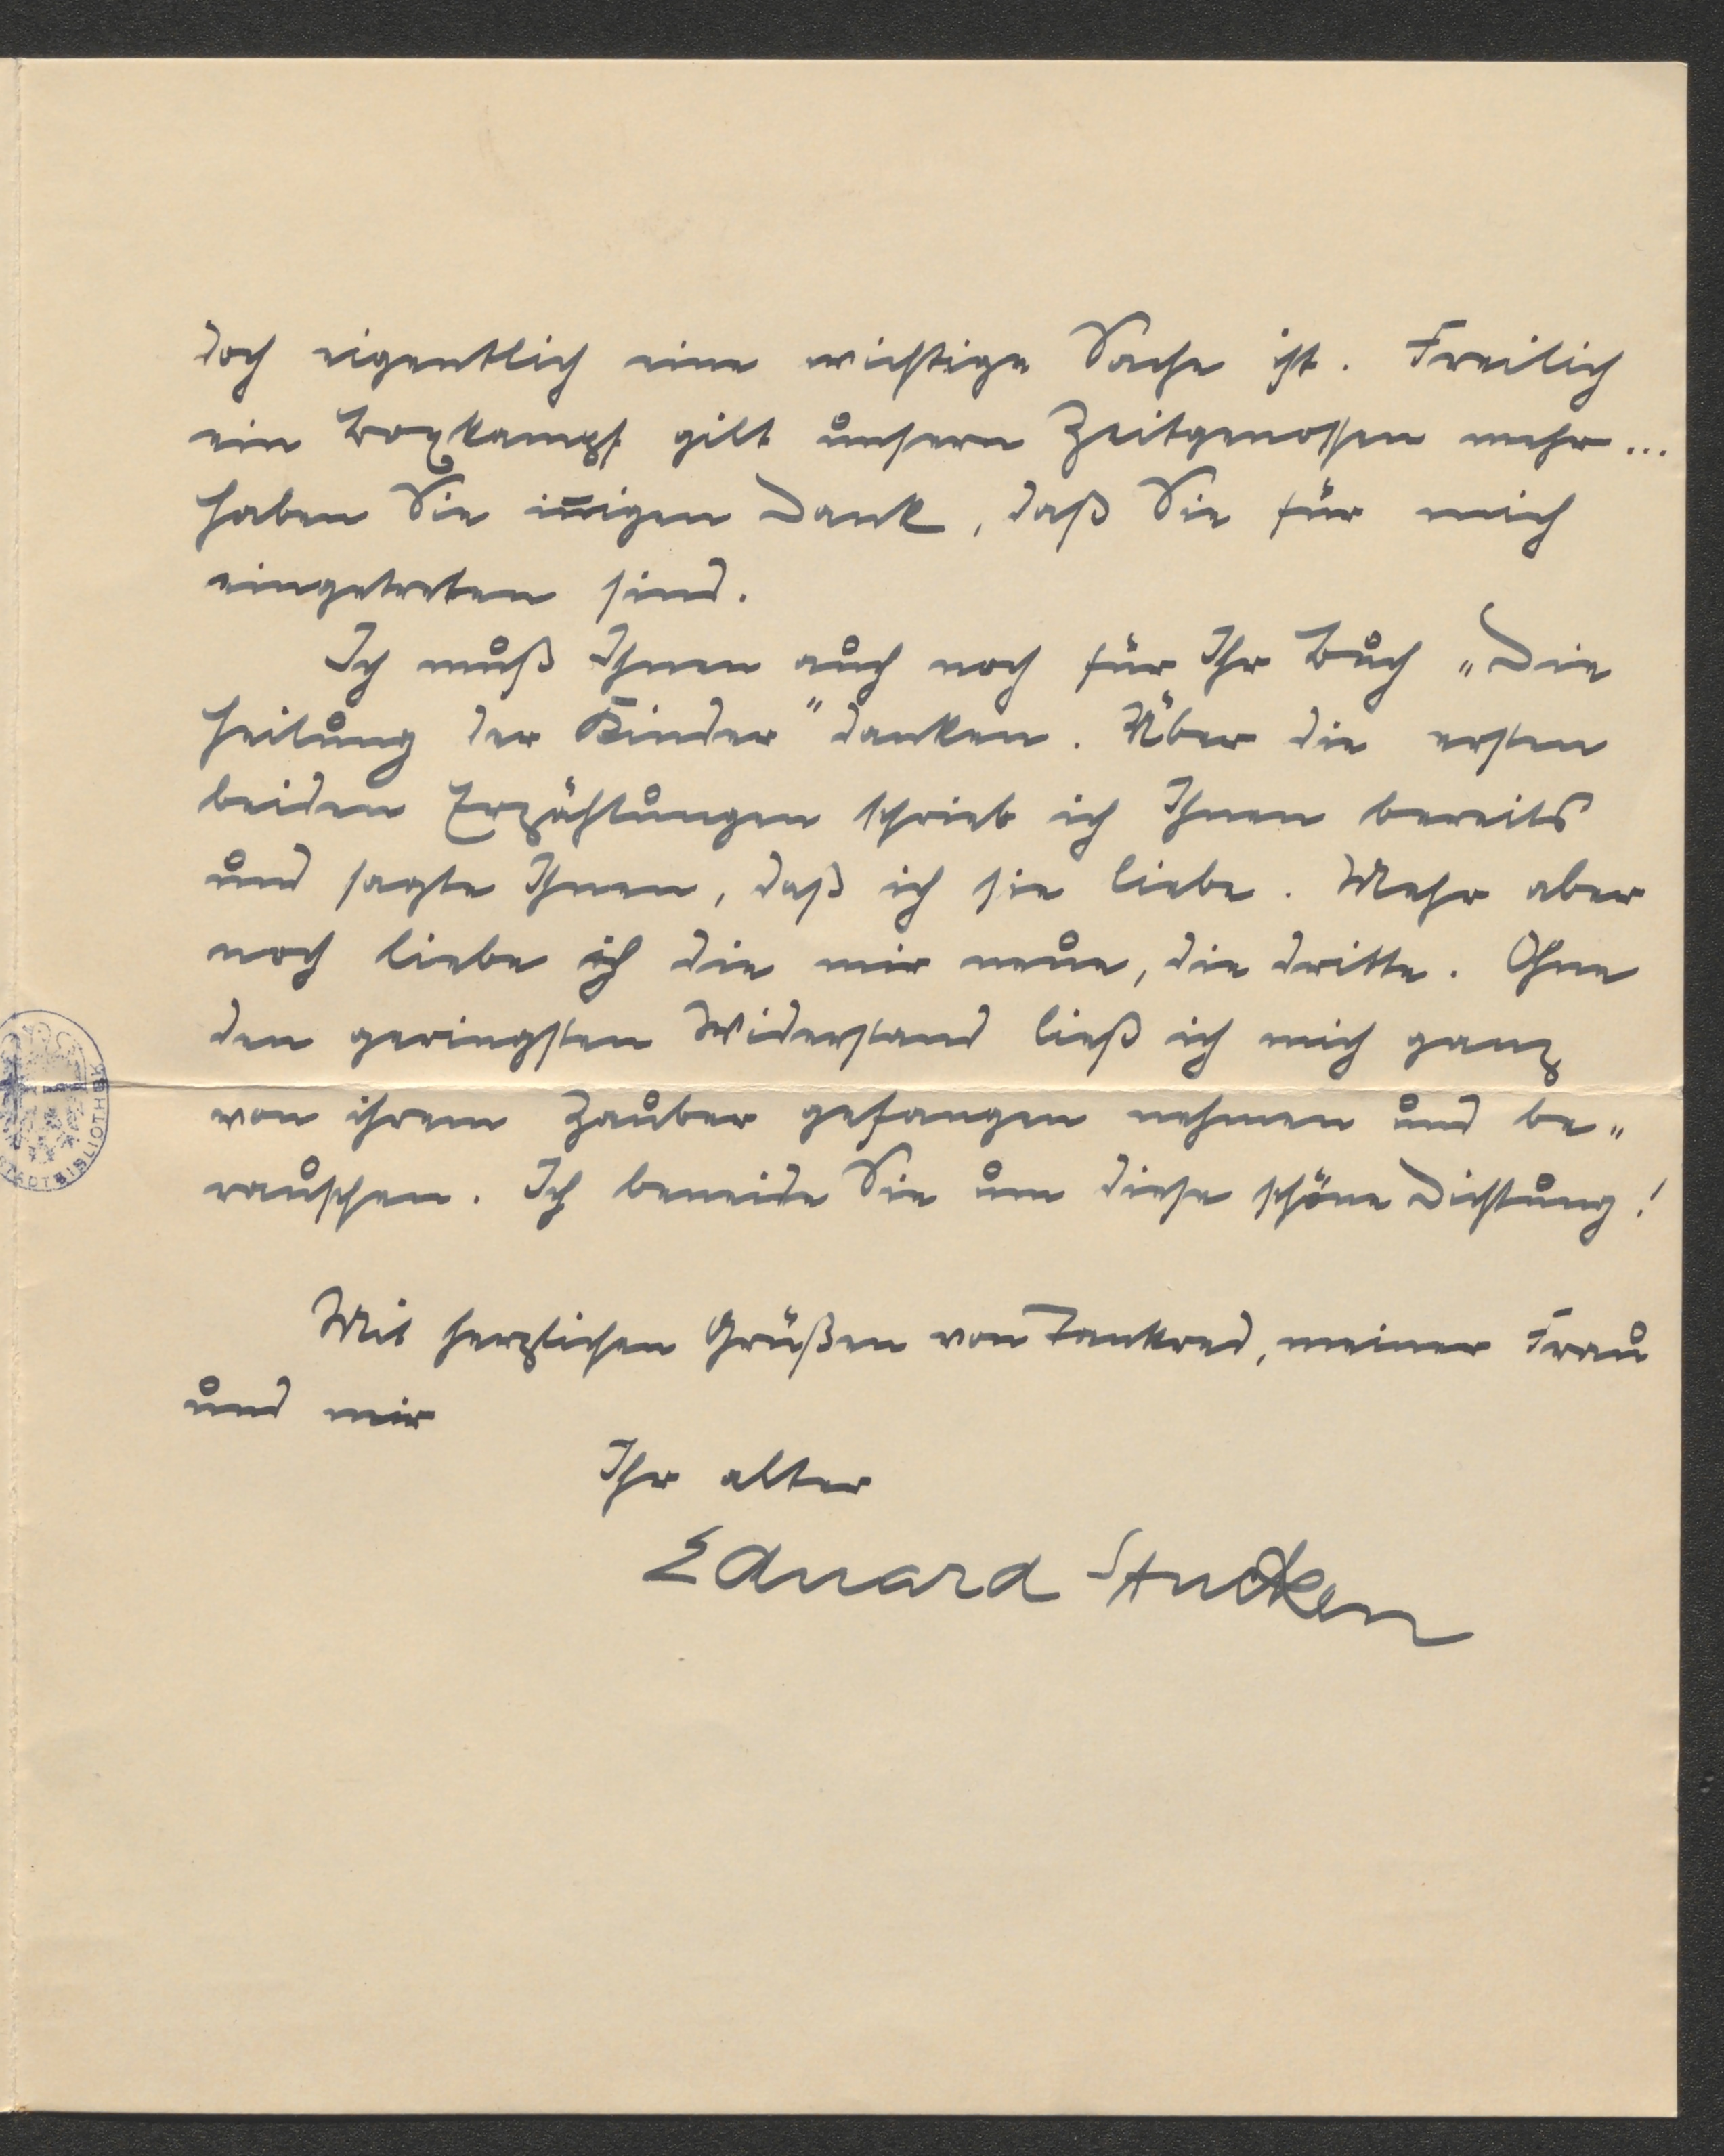 doch eigentlich eine wichtige Sache ist. Freilich
ein Boxkampf gilt unsern Zeitgenossen mehr...
Haben Sie iñigen Dank, daß Sie für mich
eingetreten sind.
Ich muß Ihnen auch noch für Ihr Buch „Die
Heilung der Kinder" danken. Über die ersten
beiden Erzählungen schrieb ich Ihnen bereits
und sagte Ihnen, daß ich sie liebe. Mehr aber
noch liebe ich die mir neue, die dritte. Ohne
den geringsten Widerstand ließ ich mich ganz
von ihrem Zauber gefangen nehmen und be-
rauschen. Ich beneide Sie um diese schöne Dichtung!
Mit herzlichen Grüßen von Tankred, meiner Frau
und mir
Ihr alter
Eduard Stucken
STADTBIBLIOTHEK